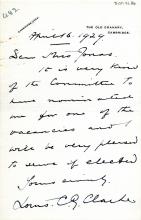 THE OLD GRANARY,
CAMBRIDGE.
April 16. 1929
Dear Miss Jonas.
It is very kind
of the Committee to
have nominated
me for one of the
vacancies and I
will be very pleased
to serve if elected
Yours sincerely
Louis. C. G. Clarke